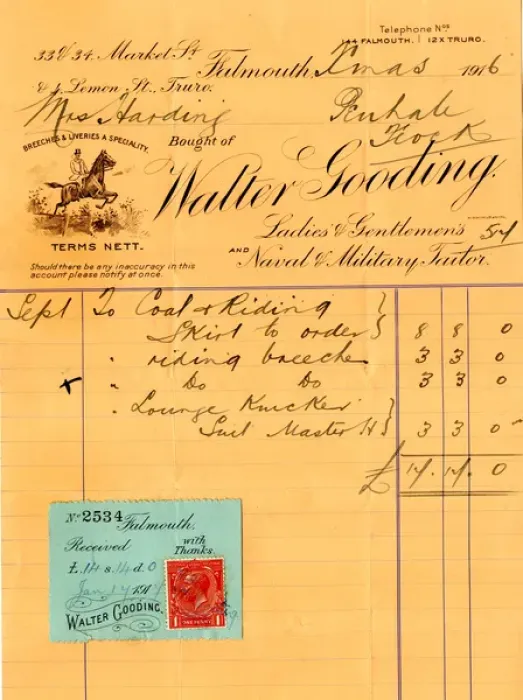 Telephone Nos
144 FALMOUTH. | 12X TRURO.
33 & 34, Market St Falmouth, Xmas 1916
& 4, Lemon St., Truro.
Mrs Harding Penhale
BREECHES & LIVERIES A SPECIALITY. Bought of
Walter Gooding.
Ladies' & Gentlemen's 54
TERMS NETT. AND Naval & Military Tailor.
Should there be any inaccuracy in this
account please notify at once.
Sept To Coat & Riding }
Skirt to order } 8 8 0
" riding breeches 3 3 0
x " Do Do 3 3 0
" Lounge Knicker }
Suit Master H } 3 3 0
£ 14. 14. 0
No 2534 Falmouth.
Received with Thanks
£ 14 s. 14 d. 0
Jan 17 1917
WALTER GOODING.
1 ONE PENNY 1